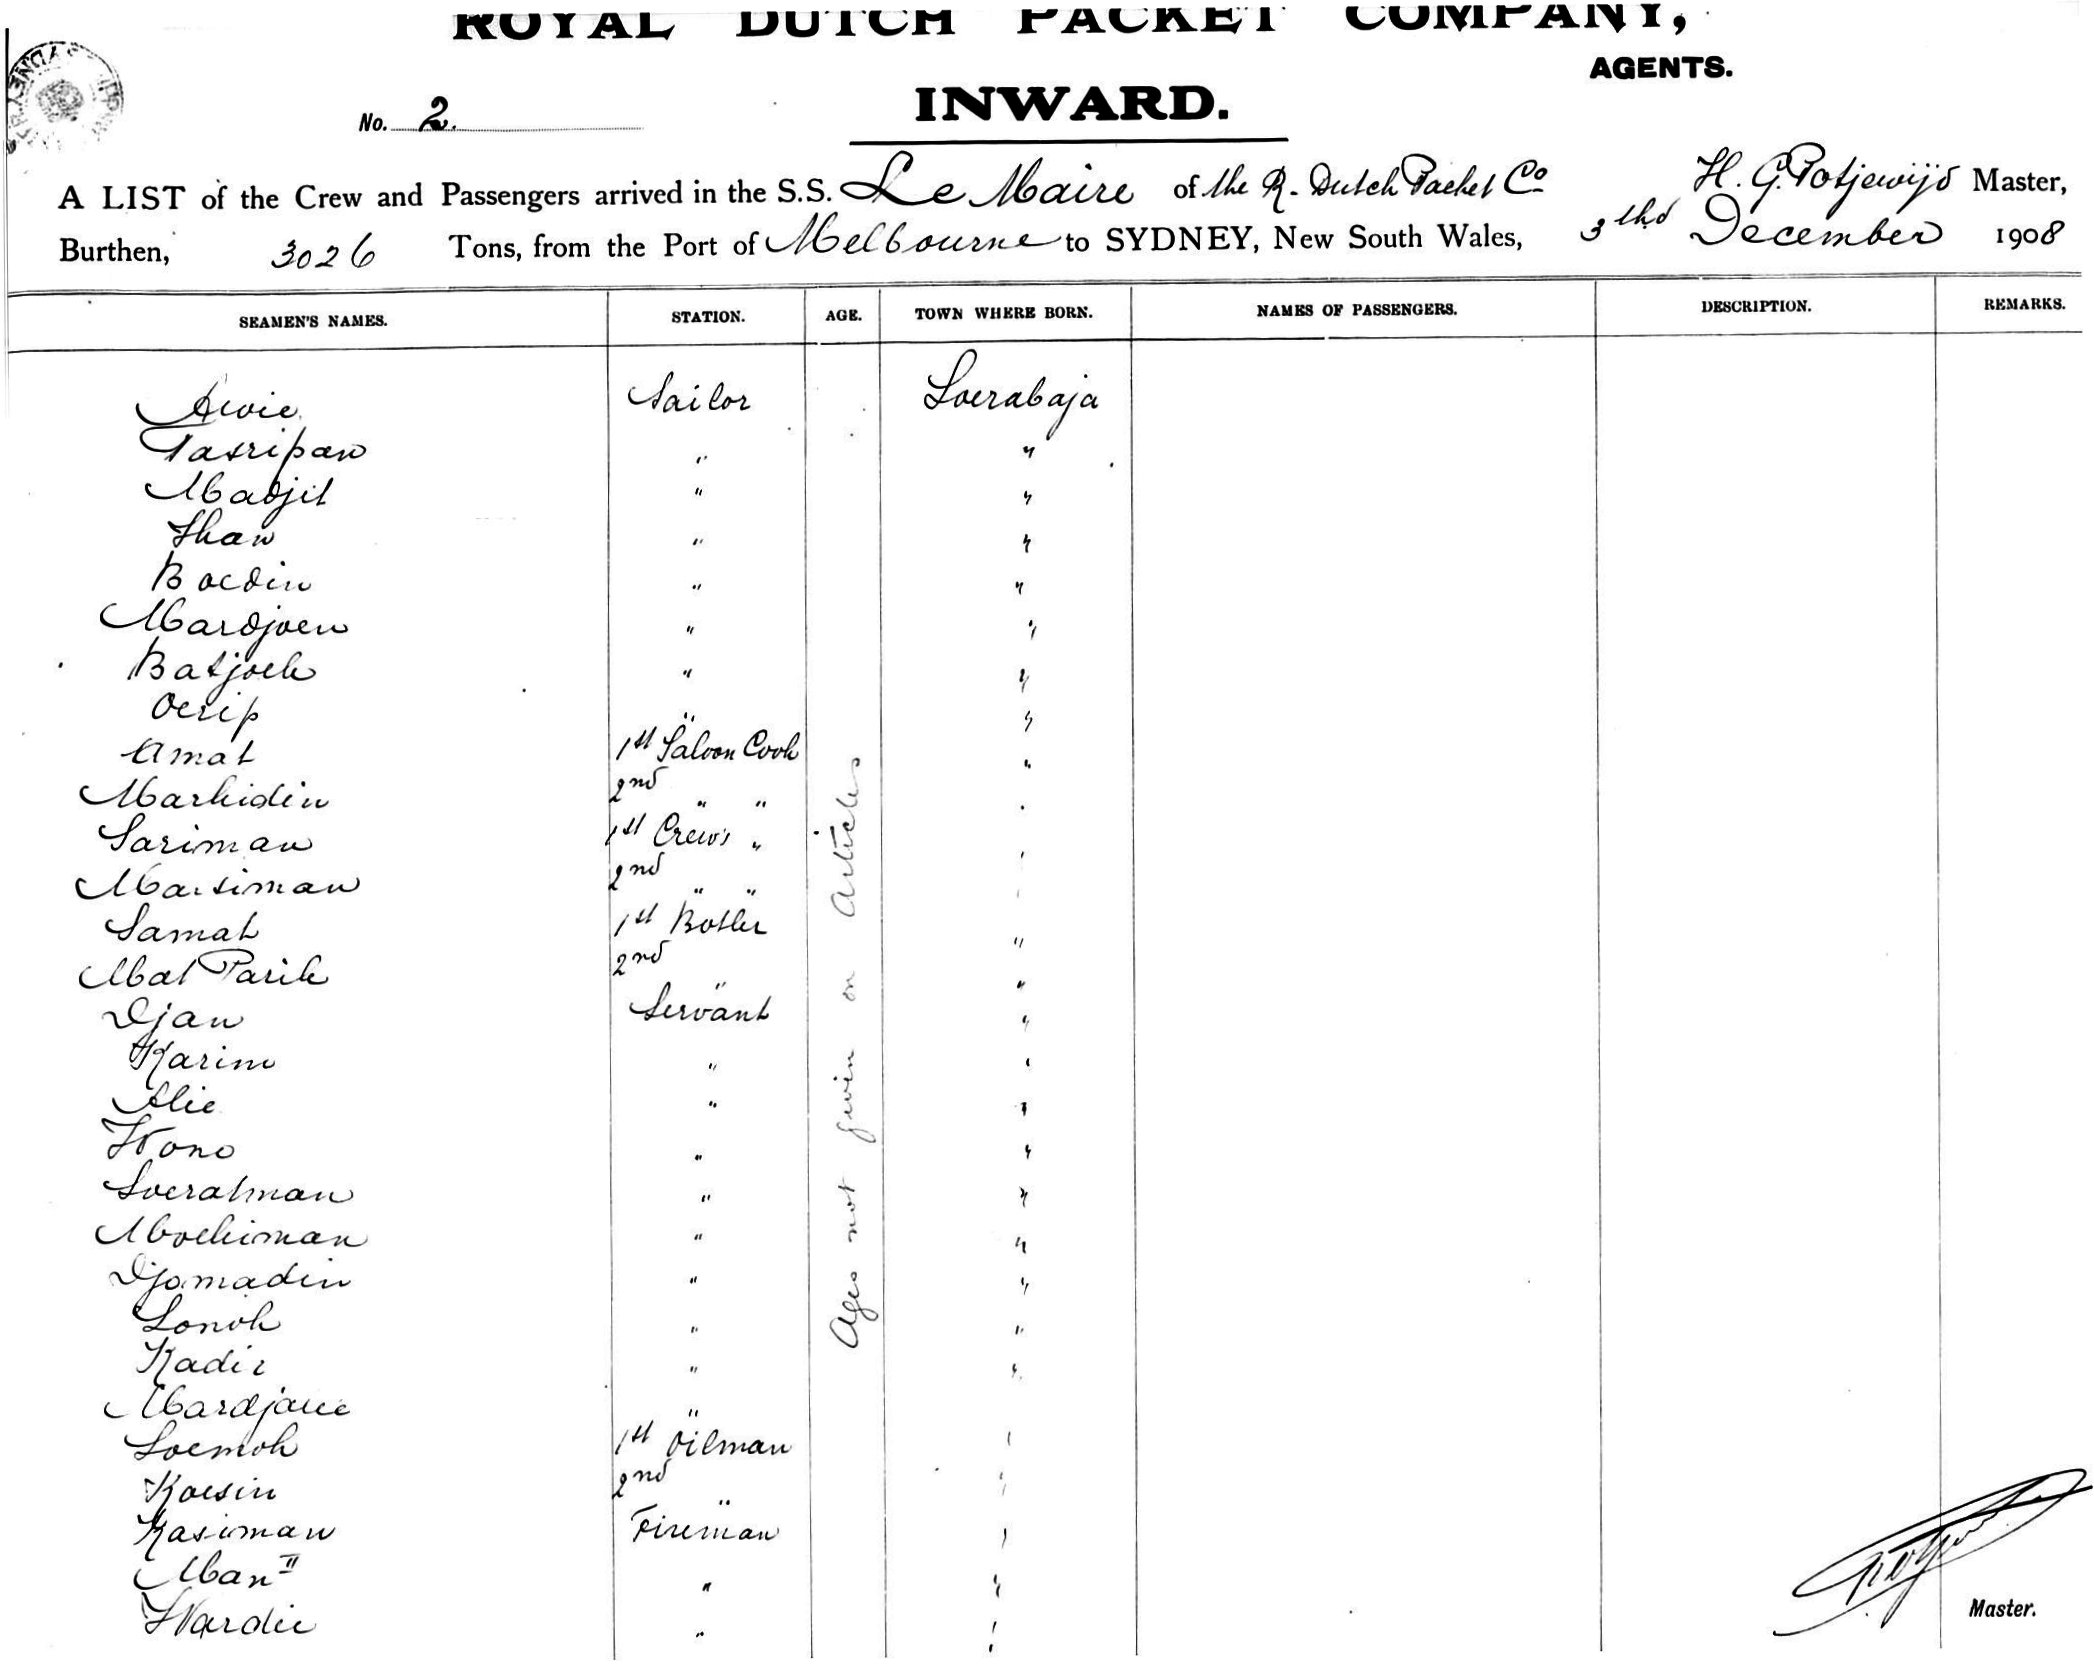 ROYAL DUTCH PACKET COMPANY,
AGENTS.
SYDNEY
No. 2.
INWARD.
A LIST of the Crew and Passengers arrived in the S.S. Le Maire of the R. Dutch Packet Co H. G. Potjewijd Master,
Burthen, 3026 Tons, from the Port of Melbourne to SYDNEY, New South Wales, 3thd December 1908
SEAMEN'S NAMES. STATION. AGE. TOWN WHERE BORN. NAMES OF PASSENGERS. DESCRIPTION. REMARKS.
Ages not given on Articles
Awie Sailor Soerabaja
Tasripan " "
Madjit " "
Ikan " "
Boedin " "
Mardjoen " "
Batjoek " "
Oerip " "
Amat 1st Saloon Cook "
Markidin 2nd " " "
Sariman 1st Crew's " "
Marsiman 2nd " " "
Samat 1st Botler "
Mat Parik 2nd " "
Djan Servant "
Karim " "
Alie " "
Wono " "
Soeratman " "
Moekiman " "
Djomadin " "
Sonok " "
Kadir " "
Mardjaee " "
Soemoh 1st Oilman "
Koesin 2nd " "
Kasiman Fireman "
Man II " "
Wardie " "
Master.